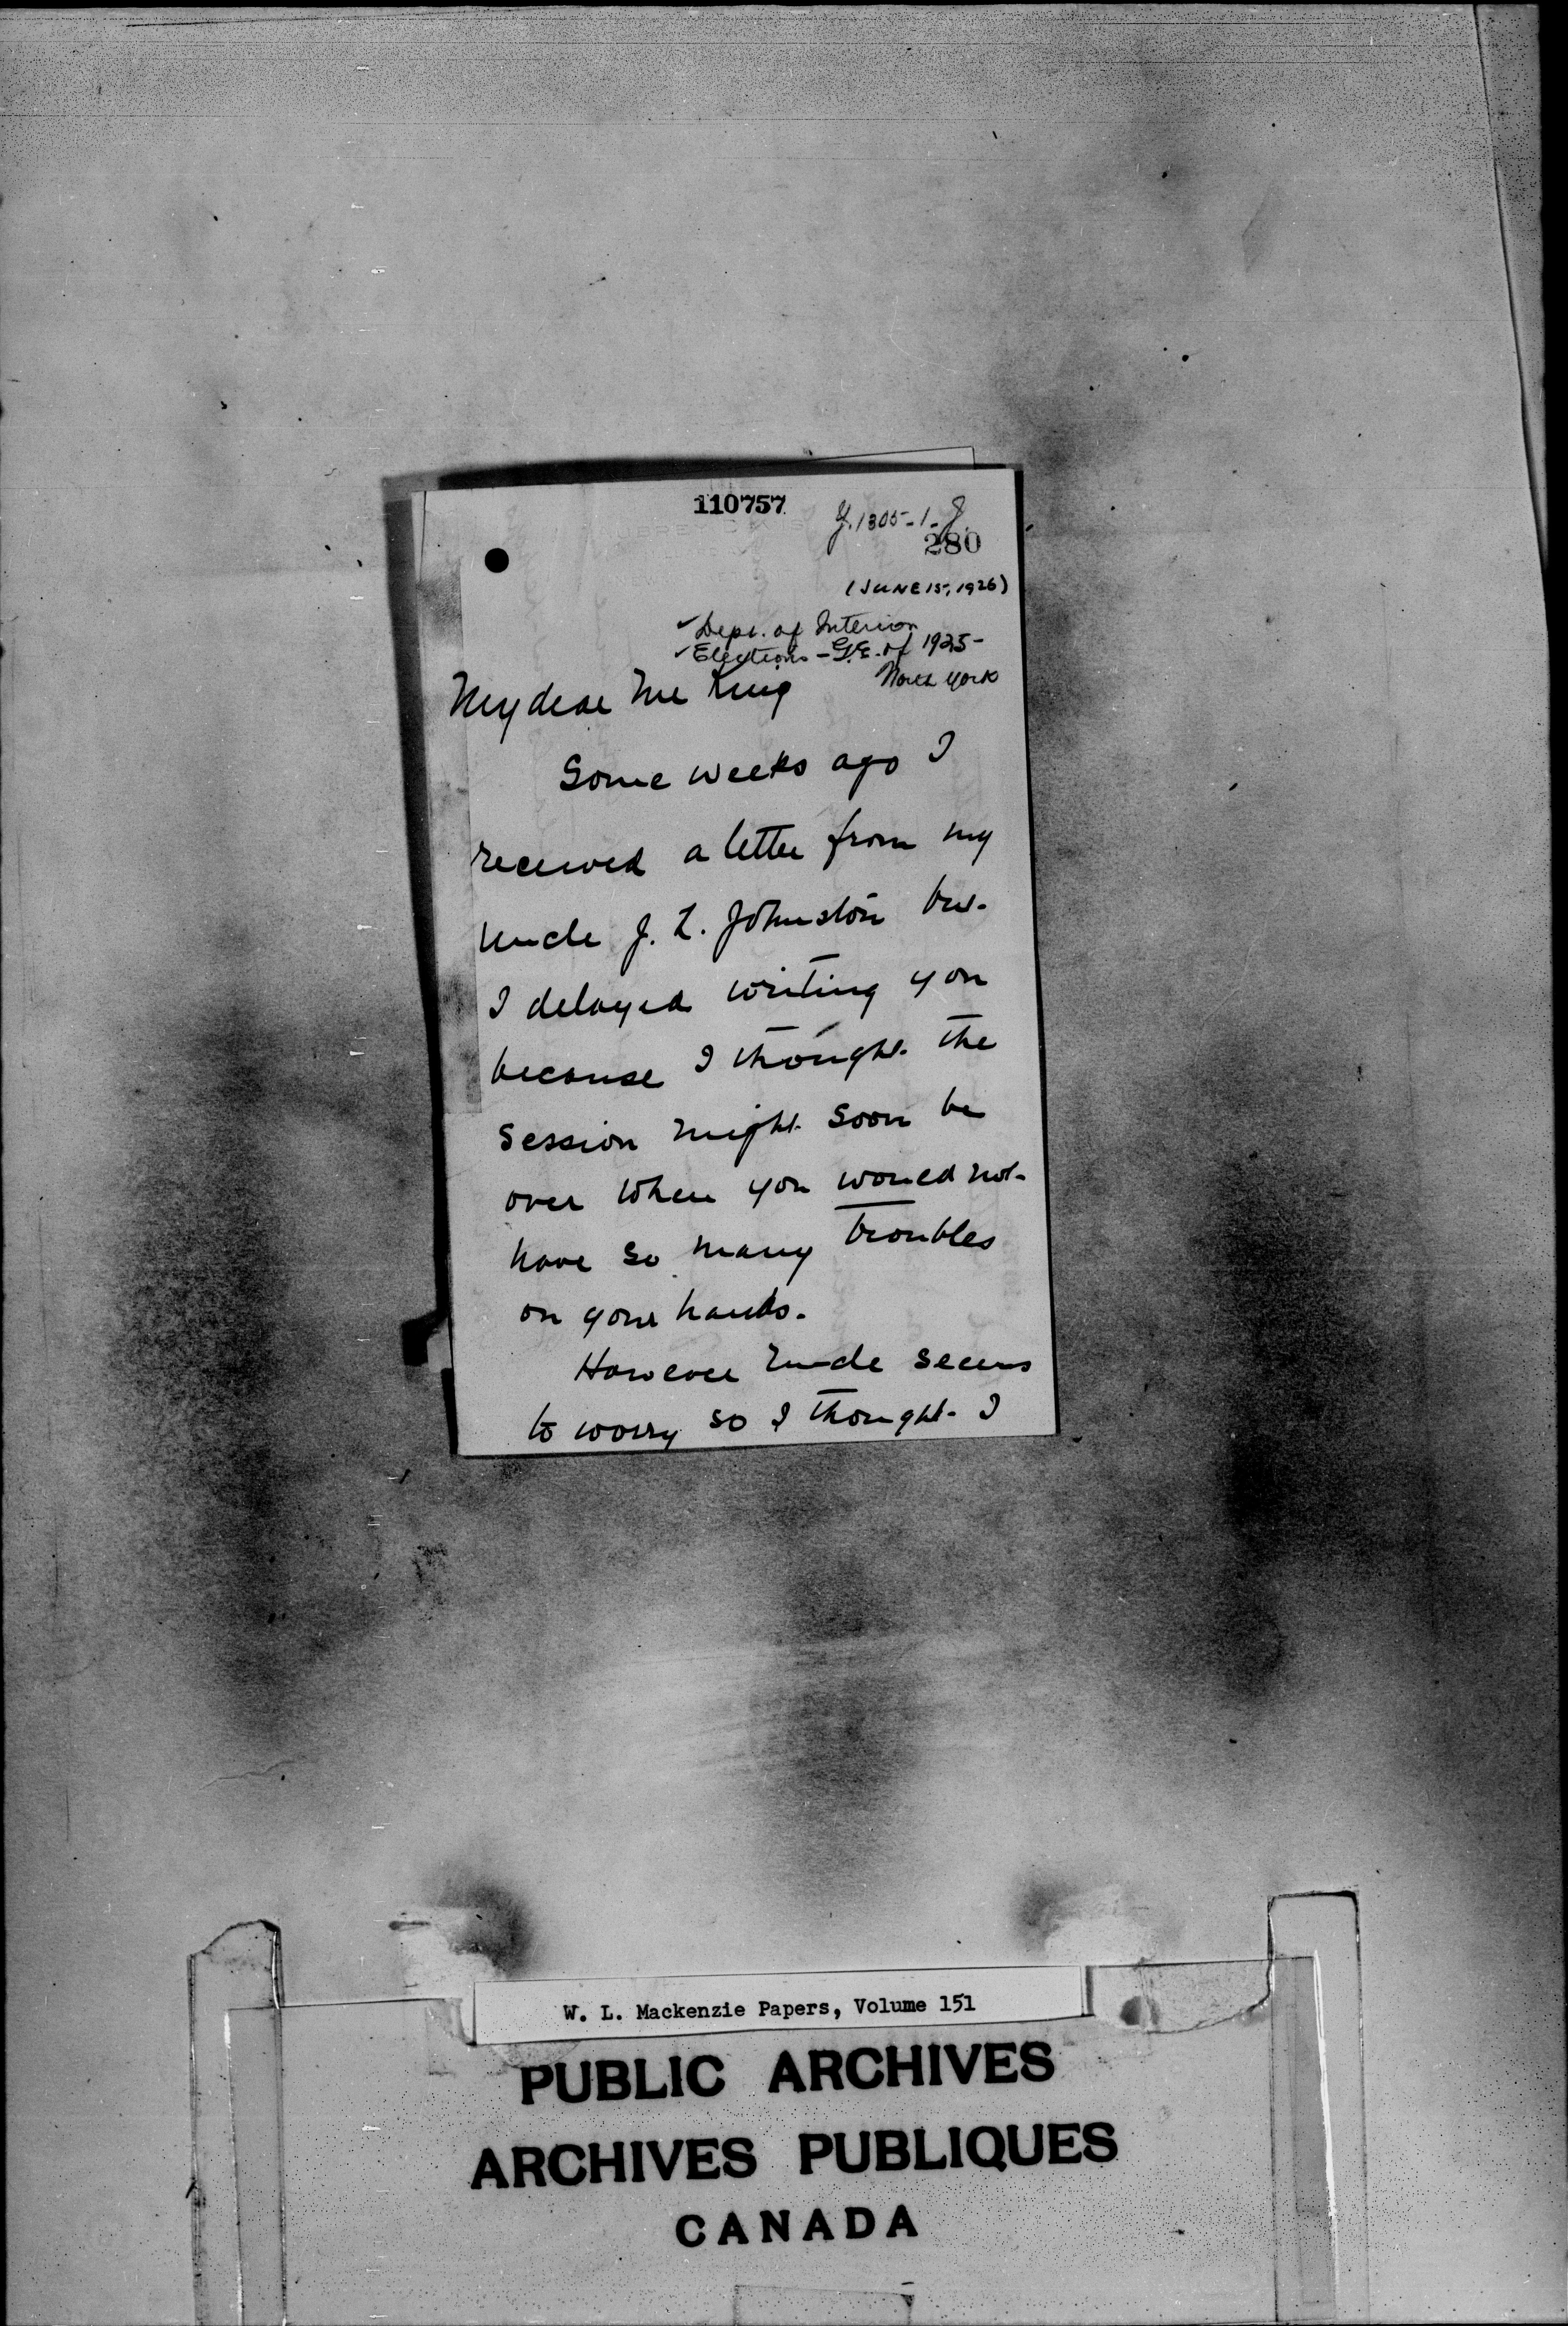 110757
J.1305-1-J.
280
(JUNE 15, 1926)
✓Dept. of Interior
✓Elections - G.E. of 1925-
North York
My dear Mr King
Some weeks ago I
received a letter from my
Uncle J. L. Johnston but
I delayed writing you
because I thought the
Session might soon be
over when you would not
have so many troubles
on your hands.
However Uncle seems
to worry so I thought I
W. L. Mackenzie Papers, Volume 151
PUBLIC ARCHIVES
ARCHIVES PUBLIQUES
CANADA